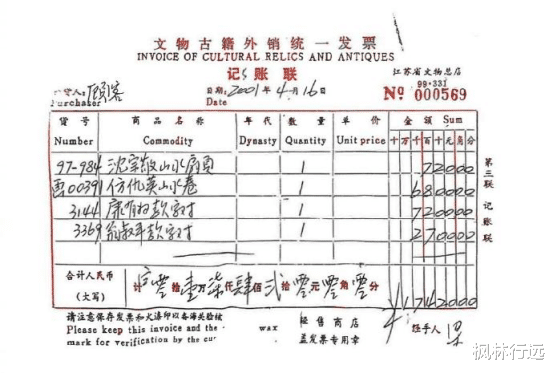 文物古籍外销统一发票
INVOICE OF CULTURAL RELICS AND ANTIQUES
记账联
江苏省文物总店
99·331
购货人: 顾客
Purchaser
日期: 2001年4月16日
Date
Nº 000569
货号 商品名称 年代 数量 单价 金额 Sum
Number Commodity Dynasty Quantity Unit price 十万千百十元角分
97-984 山水扇页 1 720000
00391 仿仇英山水卷 1 680000
3144 康有为款字对 1 720000
3369 翁叔平款字对 1 270000
合计人民币
(大写)
计 零拾壹万柒仟肆佰贰拾零元零角零分
¥1742000
第三联 记账联
请注意保存发票和火漆印以备海关验核
Please keep this invoice and the wax
mark for verification by the cu
经售商店
盖发票专用章
经手人 梁
枫林行远